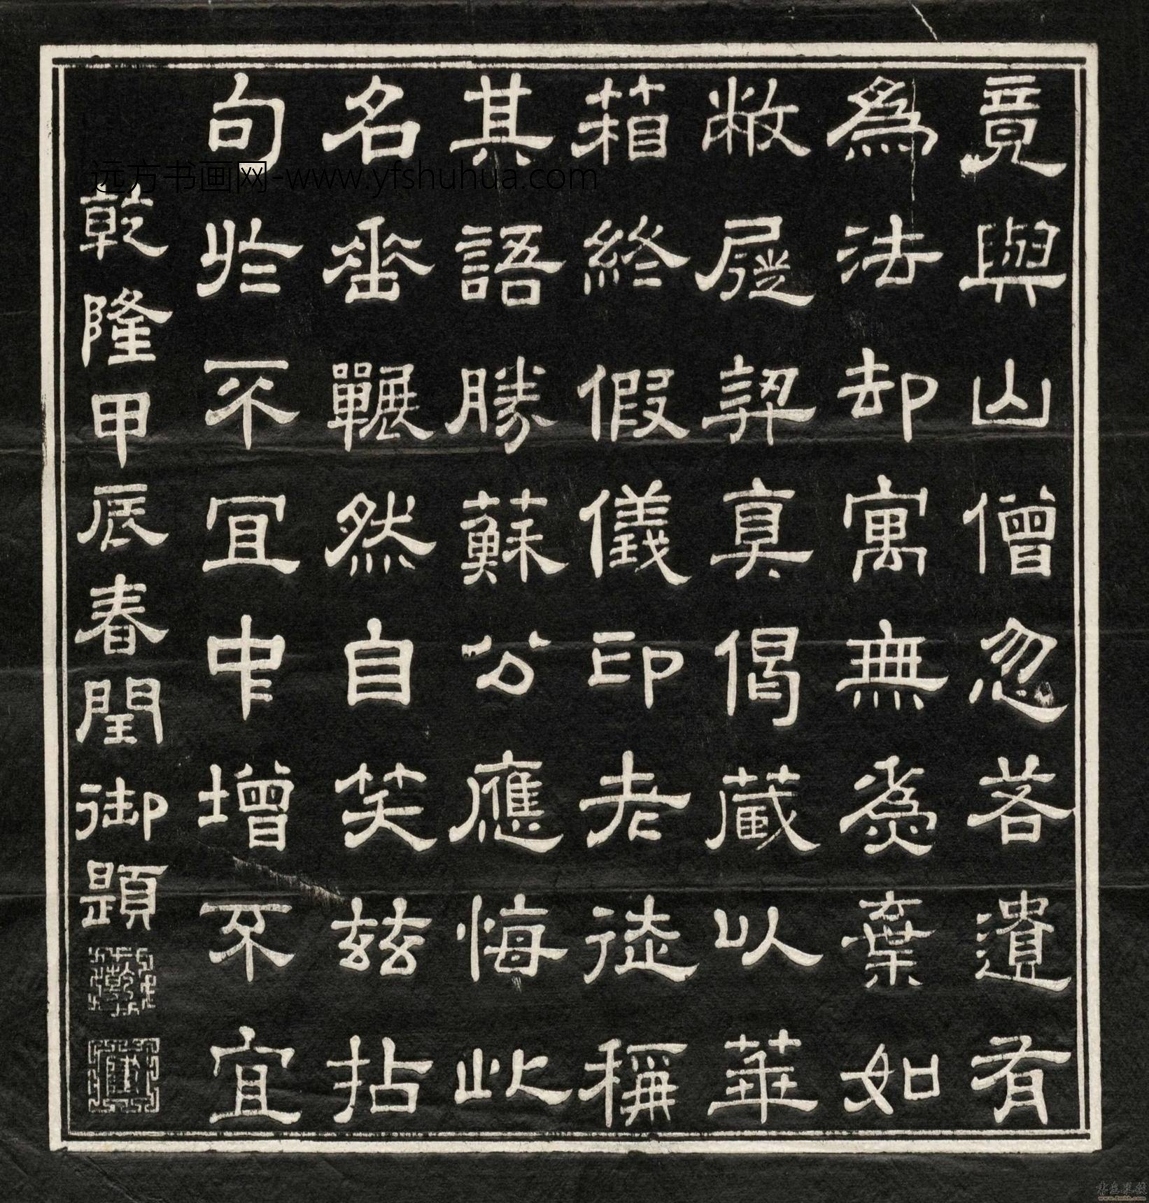 竟與山僧忽若遺有
爲法却寓無爲棄如
敝屣契真偈藏以華
箱終假儀印老徒稱
其語勝蘇公應悔此
名垂囅然自笑茲拈
句於不宜中增不宜
乾隆甲辰春閏御題
远方书画网-www.yfshuhua.com